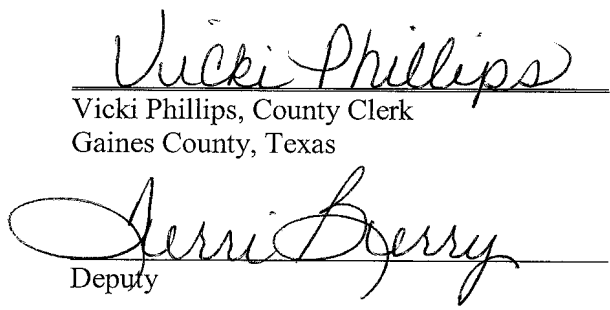 Vicki Phillips
Vicki Phillips, County Clerk
Gaines County, Texas
Terri Berry
Deputy